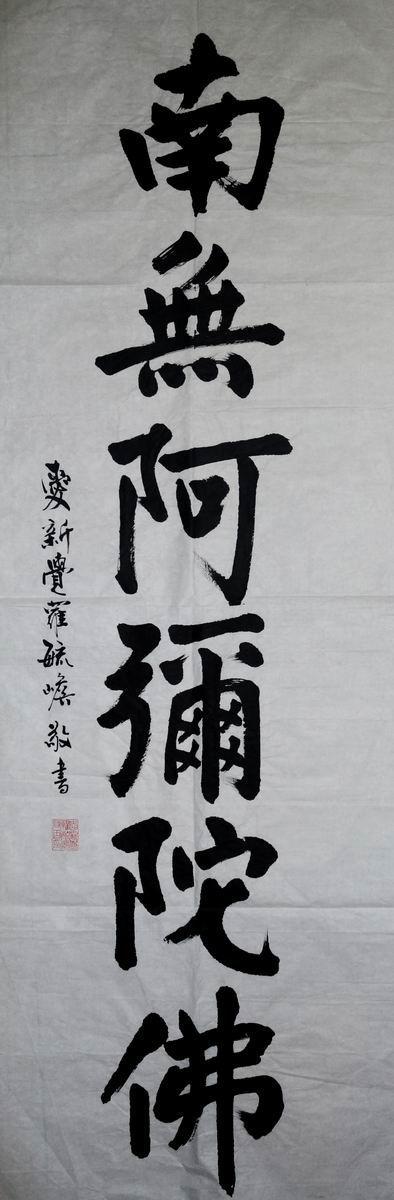 南無阿彌陀佛
愛新覺羅毓嶦敬書